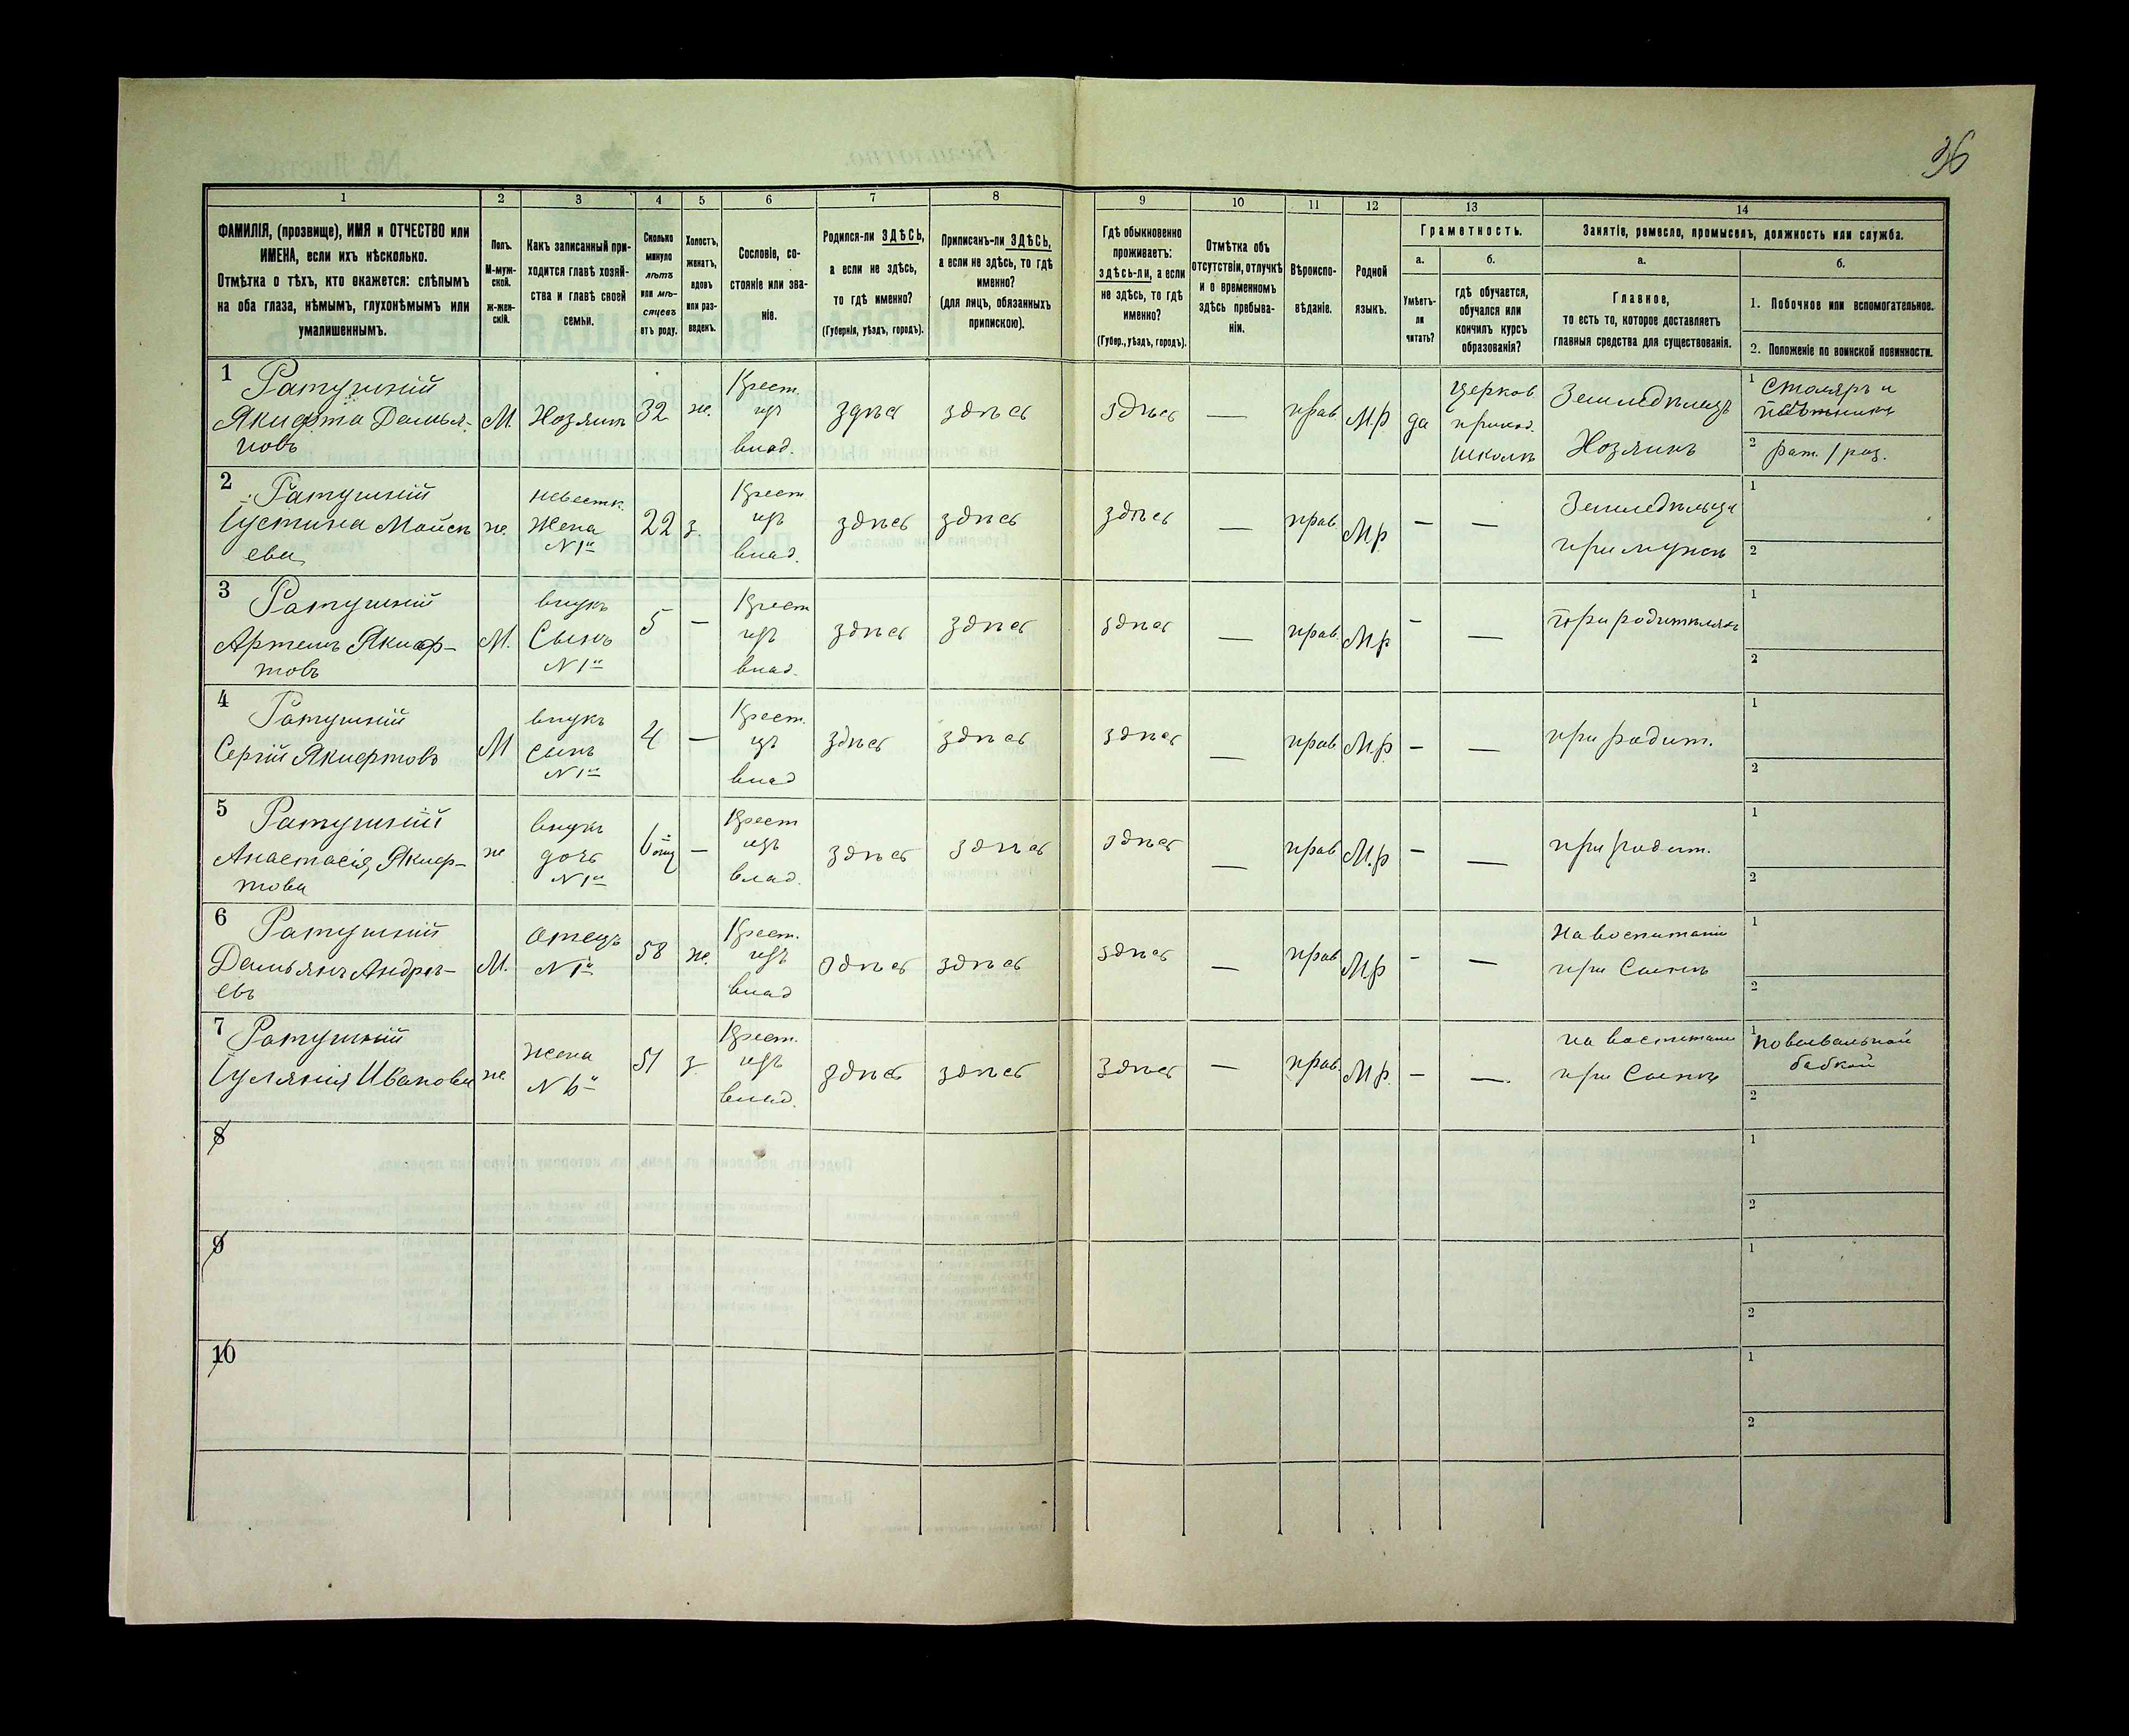 36
1 2 3 4 5 6 7 8 9 10 11 12 13 14
ФАМИЛІЯ, (прозвище), ИМЯ и ОТЧЕСТВО или
ИМЕНА, если ихъ нѣсколько.
Отмѣтка о тѣхъ, кто окажется: слѣпымъ
на оба глаза, нѣмымъ, глухонѣмымъ или
умалишеннымъ.
Полъ.
М-муж-
ской.
Ж-жен-
скій.
Какъ записанный при-
ходится главѣ хозяй-
ства и главѣ своей
семьи.
Сколько
минуло
лѣтъ
или мѣ-
сяцевъ
отъ роду.
Холостъ,
женатъ,
вдовъ
или раз-
веденъ.
Сословіе, со-
стояніе или зва-
ніе.
Родился-ли ЗДѢСЬ,
а если не здѣсь,
то гдѣ именно?
(Губернія, уѣздъ, городъ).
Приписанъ-ли ЗДѢСЬ,
а если не здѣсь, то гдѣ
именно?
(для лицъ, обязанныхъ
припискою).
Гдѣ обыкновенно
проживаетъ:
здѣсь-ли, а если
не здѣсь, то гдѣ
именно?
(Губер., уѣздъ, городъ).
Отмѣтка объ
отсутствіи, отлучкѣ
и о временномъ
здѣсь пребыва-
ніи.
Вѣроиспо-
вѣданіе.
Родной
языкъ.
Грамотность.
а.
Умѣетъ-
ли
читать?
б.
гдѣ обучается,
обучался или
кончилъ курсъ
образованія?
Занятіе, ремесло, промыселъ, должность или служба.
а.
Главное,
то есть то, которое доставляетъ
главныя средства для существованія.
б.
1. Побочное или вспомогательное.
2. Положеніе по воинской повинности.
1 Ратушній
Якифта Демья-
новъ
М.
Хозяинъ
32
ж.
Крест.
изъ
влад.
здѣсь
здѣсь
здѣсь
—
прав.
М.р.
да
церков.
приход.
школѣ
Земледѣлецъ
Хозяинъ
1 Столяръ и
2 рат. 1 раз.
2 Ратушній
Устина Моисѣ
ева
ж.
невестк.
Жена
N 1го
22
з.
Крест
изъ
влад.
здѣсь
здѣсь
здѣсь
—
прав.
М.р.
—
—
Земледѣлица
при мужѣ
1
2
3 Ратушній
Артемъ Якиф-
товъ
М.
внукъ
Сынъ
N 1го
5
—
Крест
изъ
влад.
здѣсь
здѣсь
здѣсь
—
прав.
М.р
—
—
При родителяхъ
1
2
4 Ратушній
Сергій Якифтовъ
М
внукъ
сынъ
N 1го
4
—
Крест.
изъ
влад
здѣсь
здѣсь
здѣсь
—
прав
М.р.
—
—
при родит.
1
2
5 Ратушній
Анастасія, Якиф-
това
ж
внукъ
дочь
N 1го
6
—
Крест
изъ
влад.
здѣсь
здѣсь
здѣсь
—
прав
М.р
—
—
при родит.
1
2
6 Ратушній
Демьянъ Андре-
евъ
М.
Отецъ
N 1го
58
ж.
Крест.
изъ
влад
здѣсь
здѣсь
здѣсь
—
прав
М.р
—
—
На воспитаніи
при Сынѣ
1
2
7 Ратушній
Уляния Иванова
ж.
жена
N 6го
51
з.
Крест.
изъ
влад.
здѣсь
здѣсь
здѣсь
—
прав.
М.р.
—
—
на воспитани
при Сынѣ
1 Повивальной
бабкой
2
8
1
2
9
1
2
10
1
2